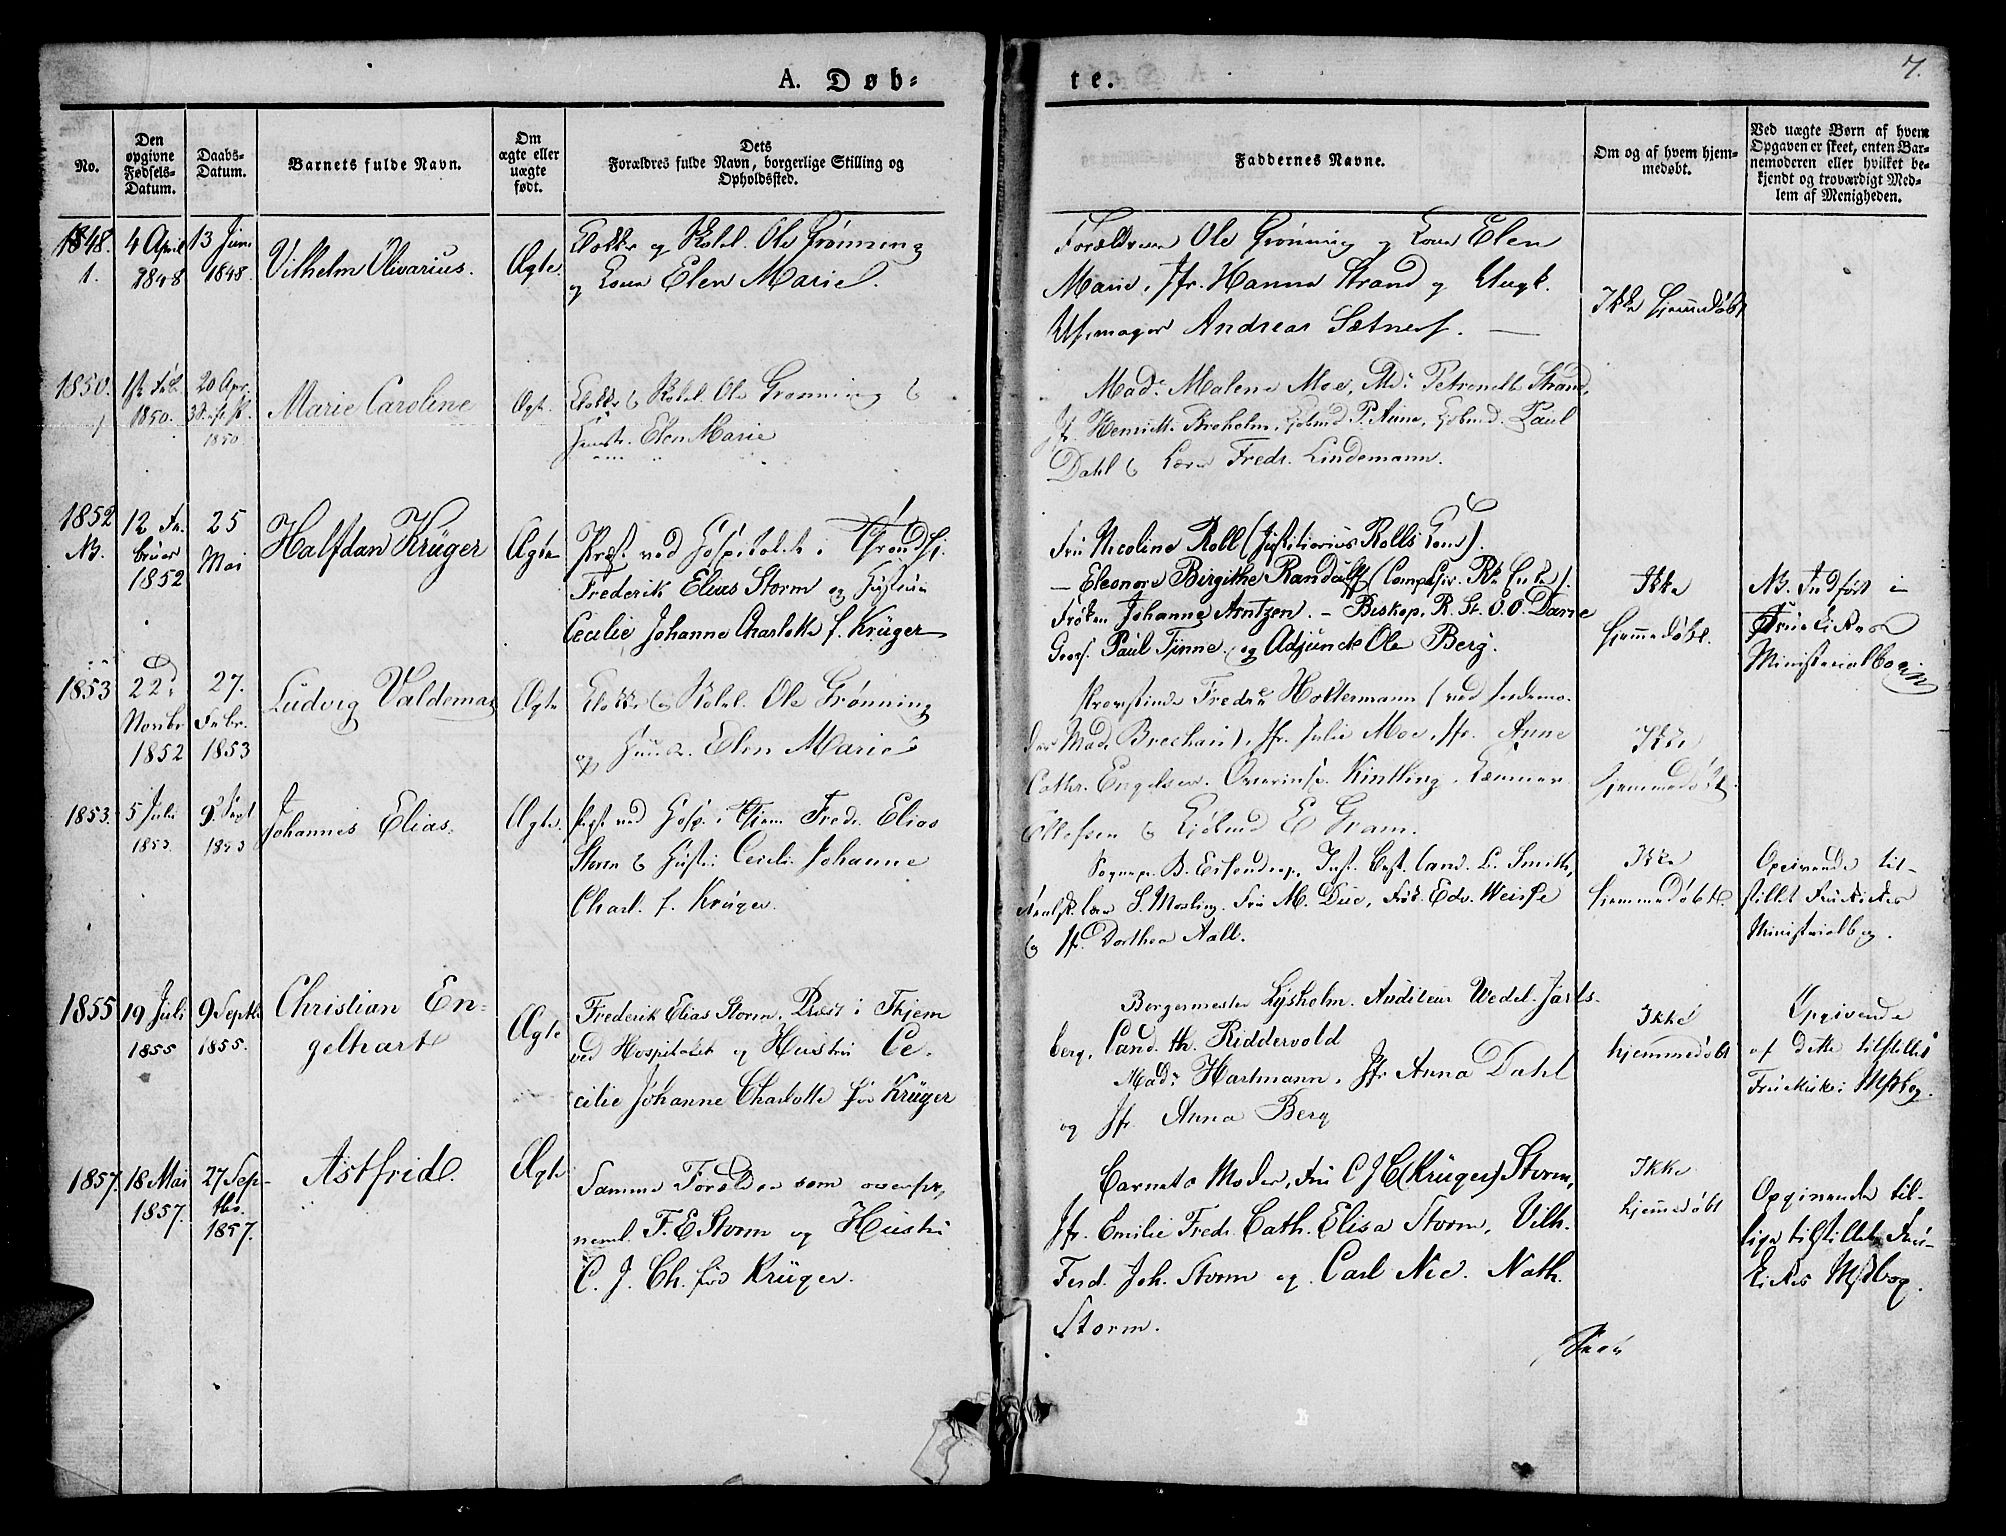 A. Døb-
te.
7.
No.
Den opgivne Fødsels-Datum.
Daabs-Datum.
Barnets fulde Navn.
Om ægte eller uægte født.
Dets Forældres fulde Navn, borgerlige Stilling og Opholdssted.
Faddernes Navne.
Om og af hvem hjem-medøbt.
Ved uægte Børn af hvem Opgaven er skeet, enten Bar-nemoderen eller hvilket be-kjendt og troværdigt Med-lem af Menigheden.
1848. 1.
4 April 1848
13 Juni 1848.
Vilhelm Olivarius.
Ægte.
Klokker og Skolel. Ole Grønning
og Kone Elen Marie.
Forældrene Ole Grønning og Kone Elen
Marie, Jfr. Hanna Strand og Ungk.
Urmager Andreas Sætnes.
Ikke hjemmedøbt
1850. 1
1850.
20 Apr.
1850
Marie Caroline
Ægte.
Klokker & Skolel. Ole Grønning &
Hustr. Elen Marie
Mad. Malene Moe, Md. Petronelle Strand,
Jfr. Henriette Broholm, Kjøbmd P. Aune, Kjøbmd. Paul
Dahl & Lærer Fredr. Lindemann.
1852 NB.
12 Fe-
bruar
1852
25
Mai
Halfdan Krüger
Ægte
Præst ved Hospitalet i Trondhj.
Frederik Elias Storm og Hustru
Cecilie Johanne Charlotte f. Krüger
Fru Nicoline Roll (Justitiarius Rolls Kone).
– Eleonora Birgithe Randulff
Frøken Johanne Arntzen. – Biskop, R. St. O. O. Darre
Gross. Paul Finne og Adjunct Ole Berg.
Ikke
hjemmedøbt.
NB. Indført i
Fruekirkens
Ministerialbog
1853
22
Novbr
1852
27.
Febr.
1853
Ludvig Valdemar
Ægte
Klokker & Skolel. Ole Grønning
og Hustr. Elen Marie
Fredr. Holtermann
Mad. Brechan), Jfr. Julie Moe, Jfr. Anne
Cathr. Engelsen. Kintling, Kæmner
Ellefsen & Kjøbmd E Gram.
Ikke
hjemmedøbt.
1853.
5 Juli
1853.
9 Sept
1853
Johannes Elias.
Ægte.
Præst ved Hosp. i Thjem Fredr. Elias
Storm & Hustru Cecilie Johanne
Charl. f. Krüger.
Sognep. B. Eisendrap, Inst. Best. Cand. C. Smith,
S. Mosling. Fru M. Due, Frøk. Edv. Weisse
& Jfr. Dorthea Aall.
Ikke
hjemmedøbt.
Opgivende til-
stillet Fruekirkes
Ministerialbog.
1855
19 Juli
1855
9 Septbr
1855.
Christian En-
gelhart
Ægte
Frederik Elias Storm. Præst i Thjem
ved Hospitalet og Hustru Ce-
cilie Johanne Charlotte før Krüger
Borgermester Lysholm. Auditeur Wedel-Jarls-
berg, Cand. th. Riddervold
Mad. Hartmann. Jfr Anna Dahl
og Jfr. Anna Berg
Ikke
hjemmedøbt
Opgivende
af dette tilstillet
Fruekirkes Mstbog.
1857.
18 Mai
1857.
27 Sep-
tbr.
1857.
Astfrid.
Ægte
Samme Forældre som ovenfor,
neml. F. E Storm og Hustru
C. J. Ch. før Krüger.
Barnets Moder, Fru C J C (Krüger) Storm,
Jfr. Emilie Fredr. Cath. Elisa Storm, Vilh.
Ferd. Joh. Storm og Carl Nic. Nath.
Storm.
Ikke
hjemmedøbt
Opgivende til-
lige tilstillet Frue-
kirkes Mstbog.